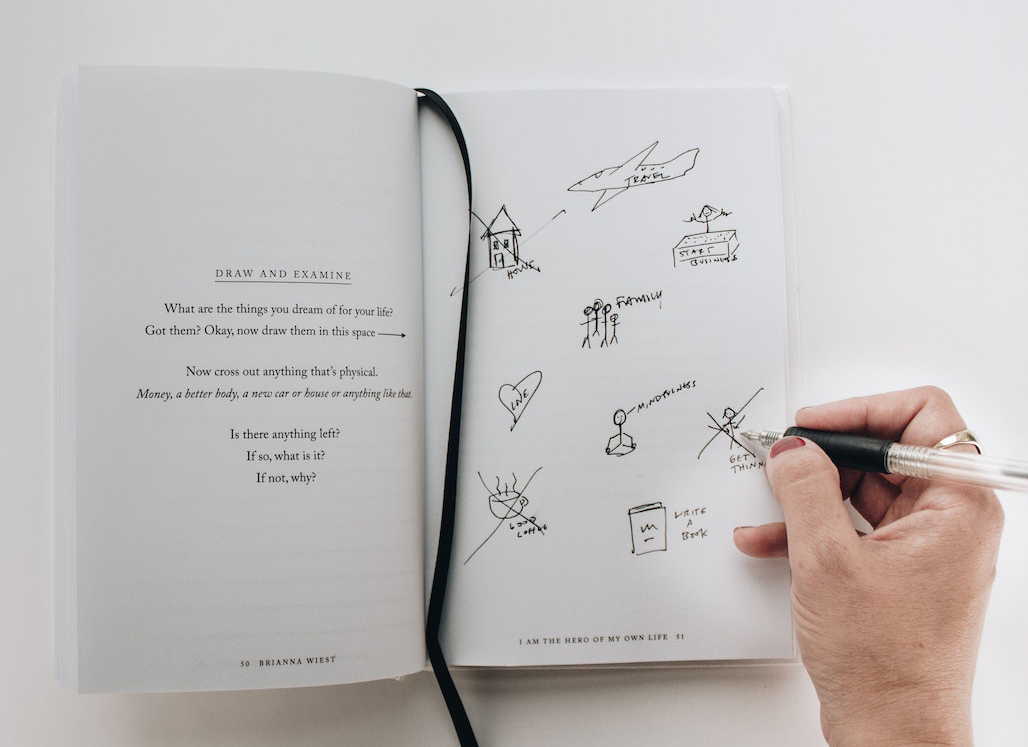 DRAW AND EXAMINE
What are the things you dream of for your life?
Got them? Okay, now draw them in this space
Now cross out anything that's physical.
Money, a better body, a new car or house or anything like that.
Is there anything left?
If so, what is it?
If not, why?
50 BRIANNA WIEST
TRAVEL
HOME
START
BUSINESS
FAMILY
LOVE
MINDFULNESS
GET
THINN
GOOD
COFFEE
WRITE
A
BOOK
I AM THE HERO OF MY OWN LIFE 51